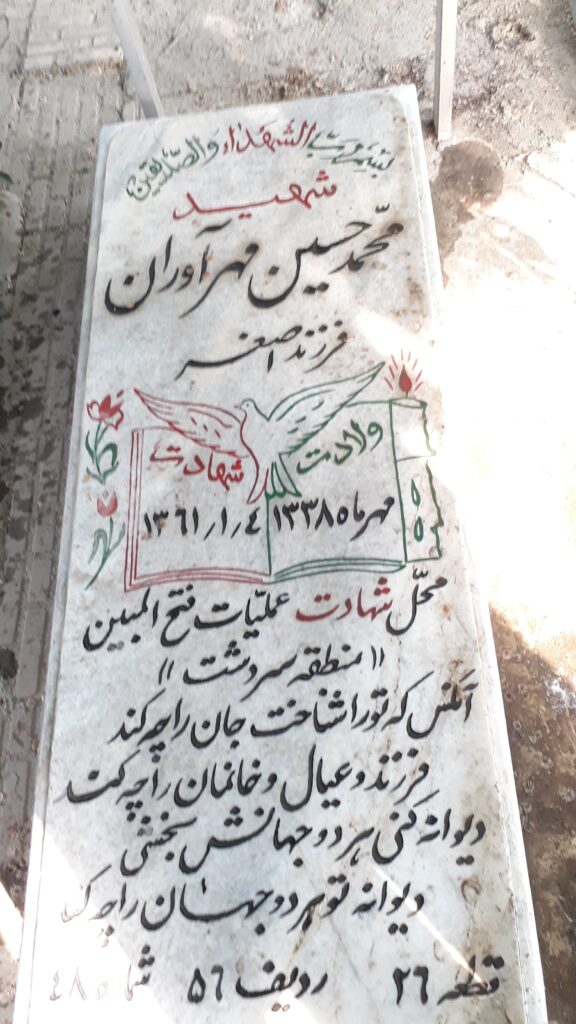 بسم رب الشهداء والصدیقین
شهید
محمد حسین مهرآوران
فرزند اصغر
ولادت شهادت
مهرماه ۱۳۳۸ ۴٫۱٫۱۳۶۱
محل شهادت عملیات فتح المبین
((منطقه سردشت))
آنکس که تو را شناخت جان را چه کند
فرزند و عیال و خانمان را چه کند
دیوانه کنی هر دو جهانش بخشی
دیوانه تو هر دو جهان را چه کند
قطعه ۲۶ ردیف ۵۶ شماره ۴۸